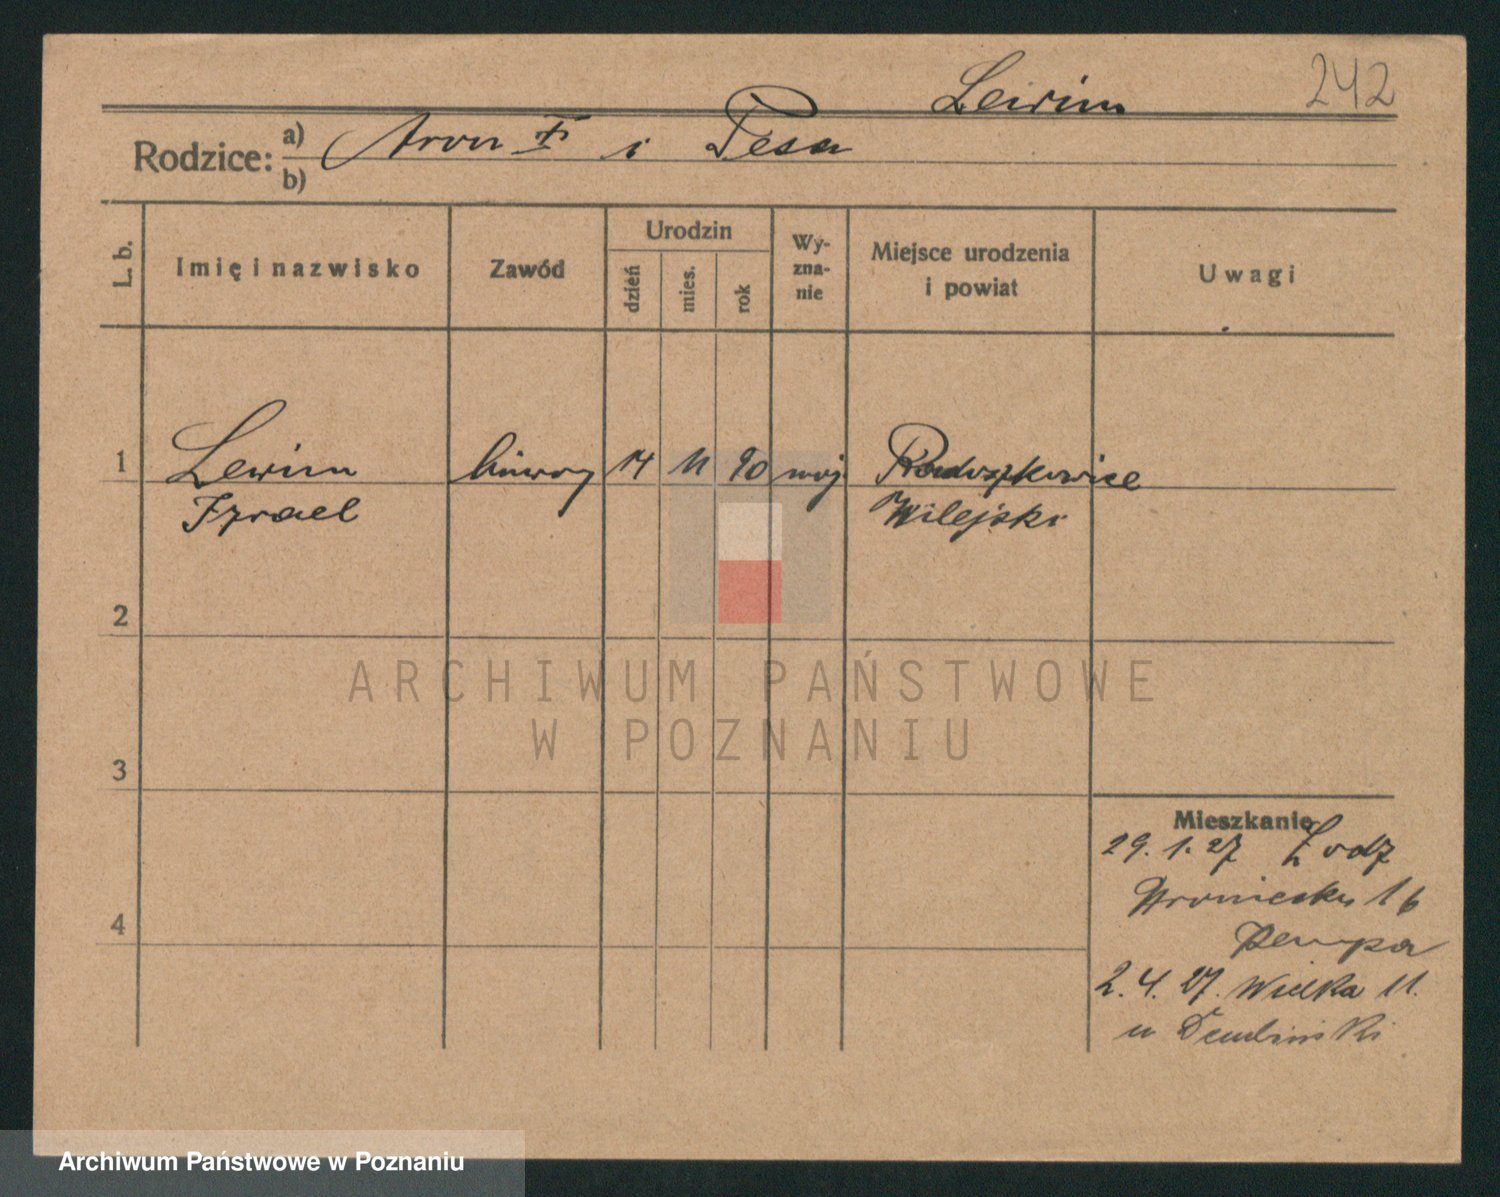 Lewin
242
Rodzice: a) Aron i Pesa
b)
L. b.
Imię i nazwisko
Zawód
Urodzin
dzień
mies.
rok
Wy-
zna-
nie
Miejsce urodzenia
i powiat
Uwagi
1
Lewin
14 11 90 moj.
Radoszkowice
Izrael
Wilejski
2
3
4
Mieszkanie
29. 1. 27 Łodz
16
2. 4. 27. Wielka 11.
u Dembinski
ARCHIWUM PAŃSTWOWE
W POZNANIU
Archiwum Państwowe w Poznaniu